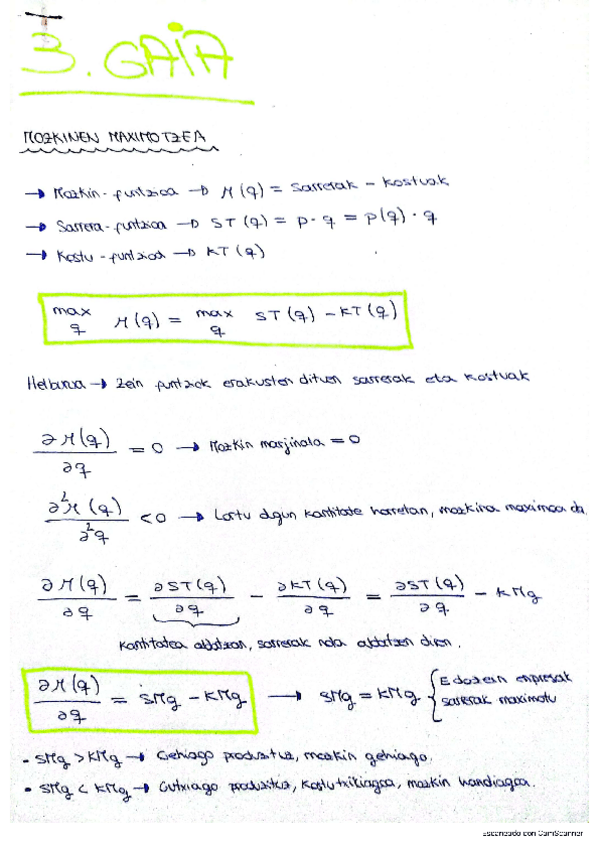 3. GAIA
MOZKINEN MAXIMOTZEA
→ Mozkin-funtzioa → M(q) = Sarrerak - Kostuak
→ Sarrera-funtzioa → ST(q) = P · q = P(q) · q
→ Kostu-funtzioa → KT(q)
max q M(q) = max q ST(q) - KT(q)
Helburua → Zein funtziok erakusten dituen sarrerak eta kostuak
∂M(q)/∂q = 0 → Mozkin marjinala = 0
∂²M(q)/∂²q < 0 → Lortu dgun kantitate horretan, mozkina maximoa da.
∂M(q)/∂q = ∂ST(q)/∂q - ∂KT(q)/∂q = ∂ST(q)/∂q - KMg
Kantitatea aldatzean, sarrerak nola aldatzen diren.
∂M(q)/∂q = SMg - KMg → SMg = KMg { Edozein enpresak
sarrerak maximotu
- SMg > KMg → Gehiago produzituz, mozkin gehiago.
• SMg < KMg → Gutxiago produzituz, kostu txikiagoa, mozkin handiagoa.
Escaneado con CamScanner